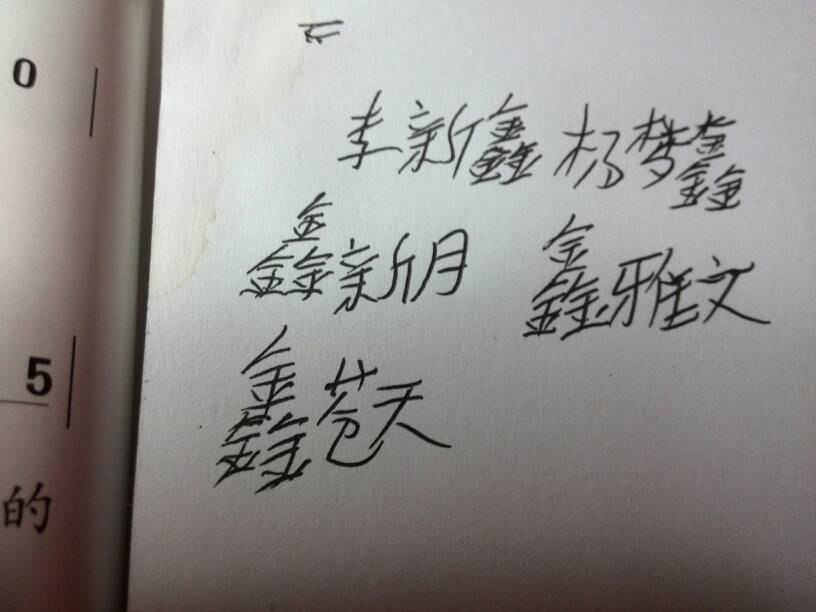 0
李新鑫 杨梦鑫
鑫新月 鑫雅文
5
鑫苍天
的